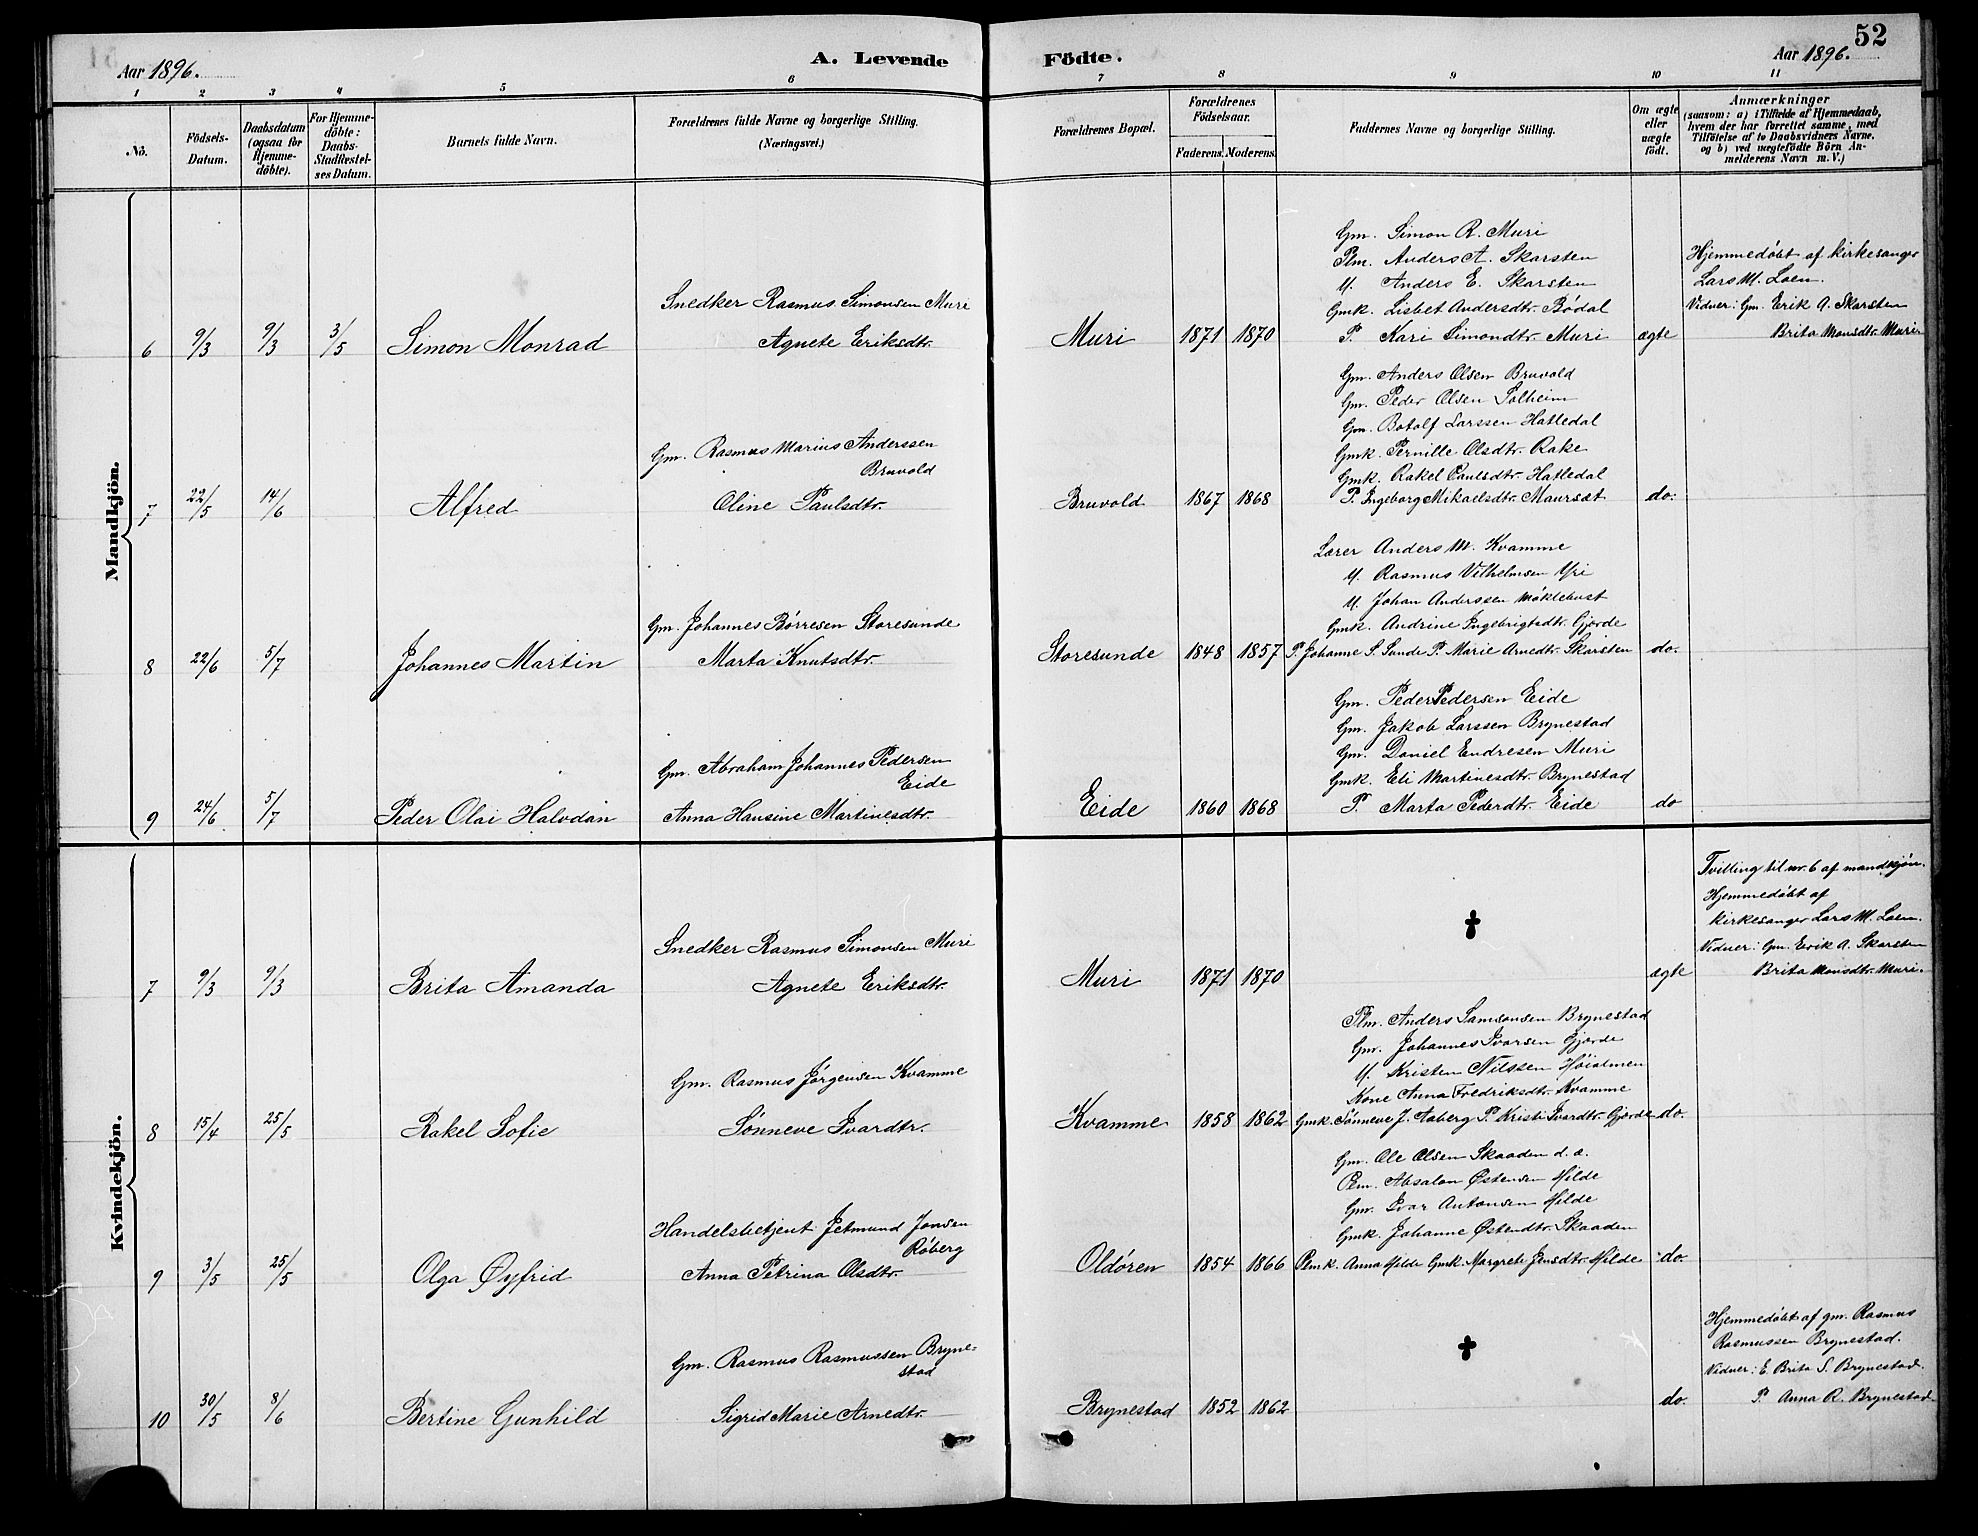 52
Aar 1896.
A. Levende
Födte.
Aar 1896.
1 2 3 4 5 6 7 8 9 10 11
No.
Födsels-
Datum.
Daabsdatum
(ogsaa for
Hjemme-
döbte).
For Hjemme-
döbte:
Daabs-
Stadfæstel-
ses Datum.
Barnets fulde Navn.
Forældrenes fulde Navne og borgerlige Stilling.
(Næringsvei.)
Forældrenes Bopæl.
Forældrenes
Födselsaar.
Faderens. Moderens.
Faddernes Navne og borgerlige Stilling.
Om ægte
eller
uægte
født.
Anmærkninger
(saasom: a) i Tilfælde af Hjemmedaab,
hvem der har forrettet samme, med
Tilföielse af to Daabsvidners Navne,
og b) ved uægtefödte Börn An-
melderens Navn m. V.)
Mandkjön.
6 9/3 9/3 3/5 Simon Monrad
Snedker Rasmus Simonsen Muri
Agnete Eriksdtr.
Muri 1871 1870
Gm. Simon R. Muri
Plm. Anders A. Skarsten
U. Anders E. Skarsten
Gmk. Lisbet Andersdtr. Bödal
P. Kari Simondtr. Muri
ægte
Hjemmedöbt af kirkesanger
Lars M. Loen.
Vidner: Gm. Erik A. Skarsten
Brita Monsdtr. Muri.
7 22/5 14/6 Alfred
Gm. Rasmus Marius Anderssen
Bruvold
Oline Paulsdtr.
Bruvold 1867 1868
Gm. Anders Olsen Bruvold
Gm. Peder Olsen Solheim
Gm. Botolf Larssen Hatledal
Gmk. Pernille Olsdtr. Rake
Gmk. Rakel Paulsdtr. Hatledal
P. Ingeborg Mikaelsdtr. Maurset
do.
8 22/6 5/7 Johannes Martin
Gm. Johannes Börresen Storesunde
Marta Knutsdtr.
Storesunde 1848 1857
Lærer Anders M. Kvamme
U. Rasmus Vilhelmsen Yri
U. Johan Anderssen Möklebust
Gmk. Andrine Ingebrigtsdtr. Gjörde
P. Johanne S. Sunde P. Marie Arnedtr. Skarsten
do.
9 24/6 5/7 Peder Olai Halvdan
Gm. Abraham Johannes Pedersen
Eide
Anna Hansine Martinesdtr.
Eide 1860 1868
Gm. Peder Pedersen Eide
Gm. Jakob Larssen Brynestad
Gm. Daniel Endresen Muri
Gmk. Eli Martinesdtr. Brynestad
P. Marta Pederdtr. Eide
do
Kvindekjön.
7 9/3 9/3 Brita Amanda
Snedker Rasmus Simonsen Muri
Agnete Eriksdtr.
Muri 1871 1870
✝
ægte
Tvilling til nr. 6 af mandkjön.
Hjemmedöbt af
kirkesanger Lars M. Loen.
Vidner: Gm. Erik A. Skarsten
Brita Monsdtr. Muri.
8 15/4 25/5 Rakel Sofie
Gm. Rasmus Jörgensen Kvamme
Sönneve Ivardtr.
Kvamme 1858 1862
Plm. Anders Samsonsen Brynestad
Gm. Johannes Ivarsen Gjörde
U. Kristen Nilssen Höialmen
Kone Anna Fredriksdtr. Kvamme
Gmk. Sönneve J. Aaberg P. Kristi Ivardtr. Gjörde
do.
9 3/5 25/5 Olga Öyfrid
Handelsbetjent Jetmund Jonsen
Röberg
Anna Petrina Olsdtr.
Oldören 1854 1866
Gm. Ole Olsen Skaaden d.æ.
Plm. Absalon Østensen Hilde
Gm. Ivar Antonsen Hilde
Gmk. Johanne Østendtr. Skaaden
Plmk. Anna Hilde Gmk. Margrete Jensdtr. Hilde
do.
10 30/5 8/6 Bertine Gunhild
Gm. Rasmus Rasmussen Bryne-
stad
Sigrid Marie Arnedtr.
Brynestad 1852 1862
✝
do.
Hjemmedöbt af gm. Rasmus
Rasmussen Brynestad.
Vidner: E. Brita S. Brynestad.
P. Anna R. Brynestad